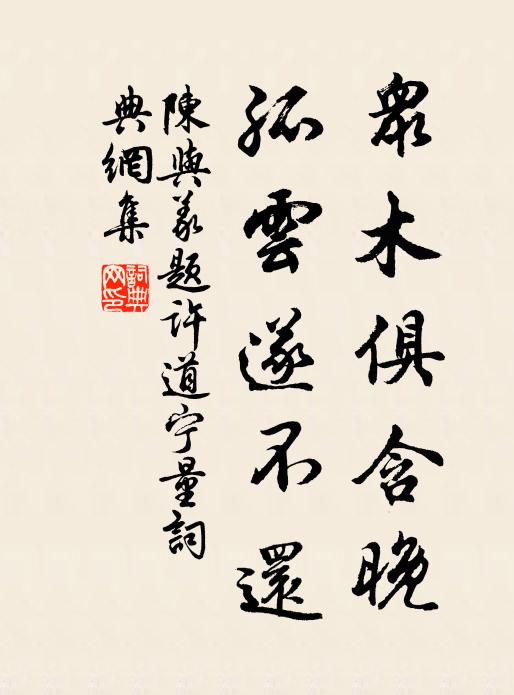 眾木俱含晚
孤雲遂不還
陳與義題許道宁量詞
典網集
詞典網印